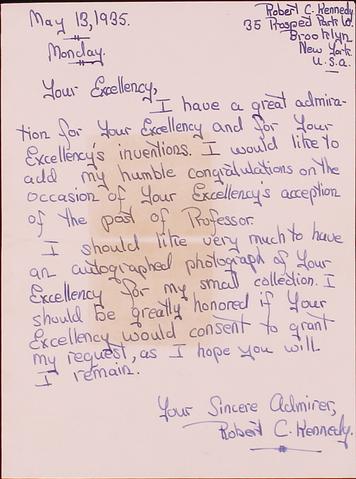 May 13, 1935.
Monday.
Robert C. Kennedy
35 Prosped Park W.
Brooklyn
New York
U.S.a.
Your Excellency,
I have a great admira-
tion for Your Excellency and for Your
Excellency's inventions. I would like to
add my humble congratulations on the
occasion of Your Excellency's acception
of the post of Professor.
I should like very much to have
an autographed photograph of Your
Excellency for my small collection. I
should be greatly honored if Your
Excellency would consent to grant
my request, as I hope you will.
I remain.
Your Sincere Admirer,
Robert C. Kennedy.